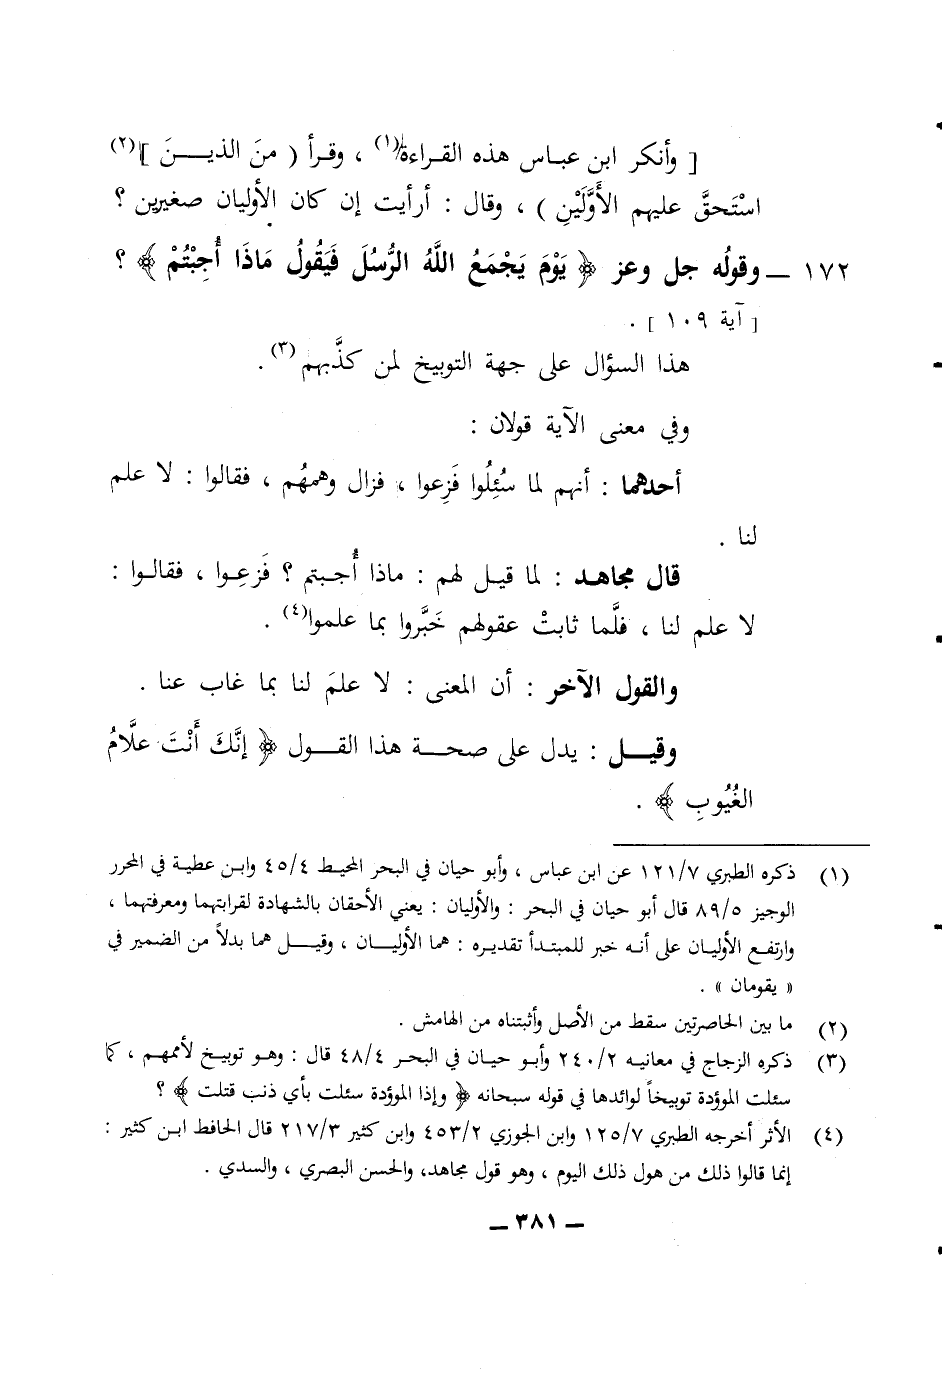 [ وأنكر ابن عباس هذه القراءة(١) ، وقرأ ( منَ الذيـــنَ ](٢)
اسْتَحقَّ عليهم الأَوَّلَيْنِ ) ، وقال : أرأيت إن كان الأوليان صغيرين ؟
١٧٢ ــ وقولُه جل وعز ﴿ يَوْمَ يَجْمَعُ اللَّهُ الرُّسُلَ فَيَقُولُ مَاذَا أُجِبْتُمْ ﴾ ؟
[ آية ١٠٩ ] .
هذا السؤال على جهة التوبيخ لمن كذَّبهم(٣) .
وفي معنى الآية قولان :
أحدهما : أنهم لما سُئِلُوا فَزِعوا ، فزال وهمهُم ، فقالوا : لا علم
لنا .
قال مجاهد : لما قيل لهم : ماذا أُجبتم ؟ فَزعِوا ، فقالوا :
لا علم لنا ، فلَّما ثابتْ عقولهم خَبَّروا بما علموا(٤) .
والقول الآخر : أن المعنى : لا علمَ لنا بما غاب عنا .
وقيــل : يدل على صحـــة هذا القـــول ﴿ إنَّكَ أَنْتَ علَّامُ
الغُيُوبِ ﴾ .
(١) ذكره الطبري ١٢١/٧ عن ابن عباس ، وأبو حيان في البحر المحيط ٤٥/٤ وابن عطية في المحرر
الوجيز ٨٩/٥ قال أبو حيان في البحر : والأوليان : يعني الأحقان بالشهادة لقرابتهما ومعرفتهما ،
وارتفع الأوليان على أنه خبر للمبتدأ تقديره : هما الأوليــان ، وقيــل هما بدلاً من الضمير في
« يقومان » .
(٢) ما بين الحاصرتين سقط من الأصل وأثبتناه من الهامش .
(٣) ذكره الزجاج في معانيه ٢٤٠/٢ وأبو حيان في البحر ٤٨/٤ قال : وهو توبيخ لأممهم ، كما
سئلت الموؤدة توبيخاً لوائدها في قوله سبحانه ﴿ وإذا الموؤدة سئلت بأي ذنب قتلت ﴾ ؟
(٤) الأثر أخرجه الطبري ١٢٥/٧ وابن الجوزي ٤٥٣/٢ وابن كثير ٢١٧/٣ قال الحافظ ابن كثير :
إنما قالوا ذلك من هول ذلك اليوم ، وهو قول مجاهد، والحسن البصري ، والسدي .
ــ ٣٨١ ــ